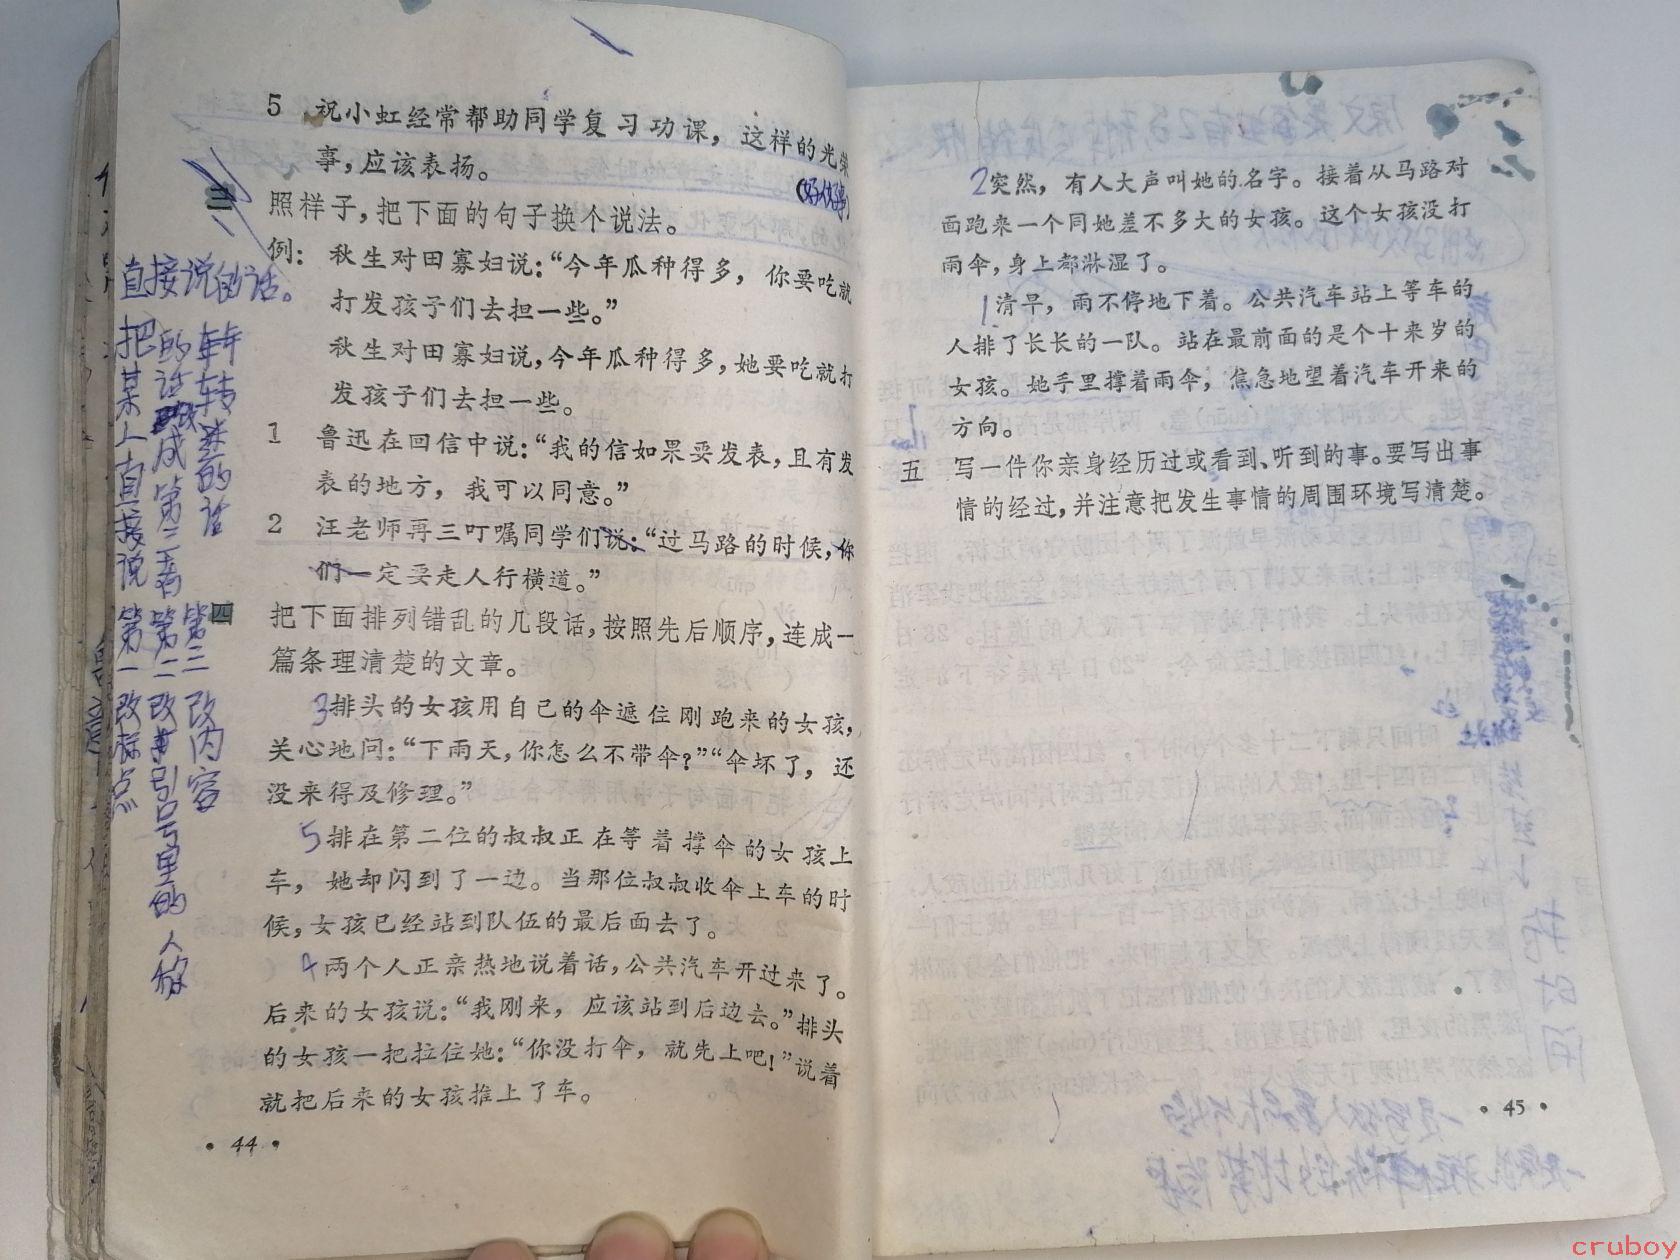 5 祝小虹经常帮助同学复习功课，这样的光荣
事，应该表扬。
(好人好事)
三 照样子，把下面的句子换个说法。
例： 秋生对田寡妇说：“今年瓜种得多，你要吃就
打发孩子们去担一些。”
秋生对田寡妇说，今年瓜种得多，她要吃就打
发孩子们去担一些。
1 鲁迅在回信中说：“我的信如果要发表，且有发
表的地方，我可以同意。”
2 汪老师再三叮嘱同学们说：“过马路的时候，你
们一定要走人行横道。”
四 把下面排列错乱的几段话，按照先后顺序，连成一
篇条理清楚的文章。
3排头的女孩用自己的伞遮住刚跑来的女孩，
关心地问：“下雨天，你怎么不带伞？”“伞坏了，还
没来得及修理。”
5排在第二位的叔叔正在等着撑伞的女孩上
车，她却闪到了一边。当那位叔叔收伞上车的时
候，女孩已经站到队伍的最后面去了。
4两个人正亲热地说着话，公共汽车开过来了。
后来的女孩说：“我刚来，应该站到后边去。”排头
的女孩一把拉住她：“你没打伞，就先上吧！”说着
就把后来的女孩推上了车。
• 44 •
直接说的话。
转转述的话
把某人直接说
的话改成第三者
第一改标点
第二改引号里的人称
第三改内容
2突然，有人大声叫她的名字。接着从马路对
面跑来一个同她差不多大的女孩。这个女孩没打
雨伞，身上都淋湿了。
1清早，雨不停地下着。公共汽车站上等车的
人排了长长的一队。站在最前面的是个十来岁的
女孩。她手里撑着雨伞，焦急地望着汽车开来的
方向。
五 写一件你亲身经历过或看到、听到的事。要写出事
情的经过，并注意把发生事情的周围环境写清楚。
• 45 •
cruboy